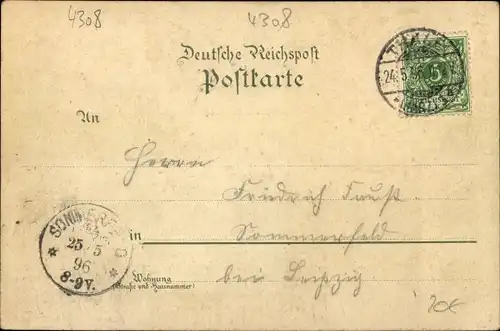 4308
4308
Deutsche Reichspost
Postkarte
An
Herrn
Friedrich Faust
in Sommerfeld
Wohnung bei Leipzig
(Straße und Hausnummer)
24.5.96
5
SOMMERFELD
25 5
96
8-9V.
20€